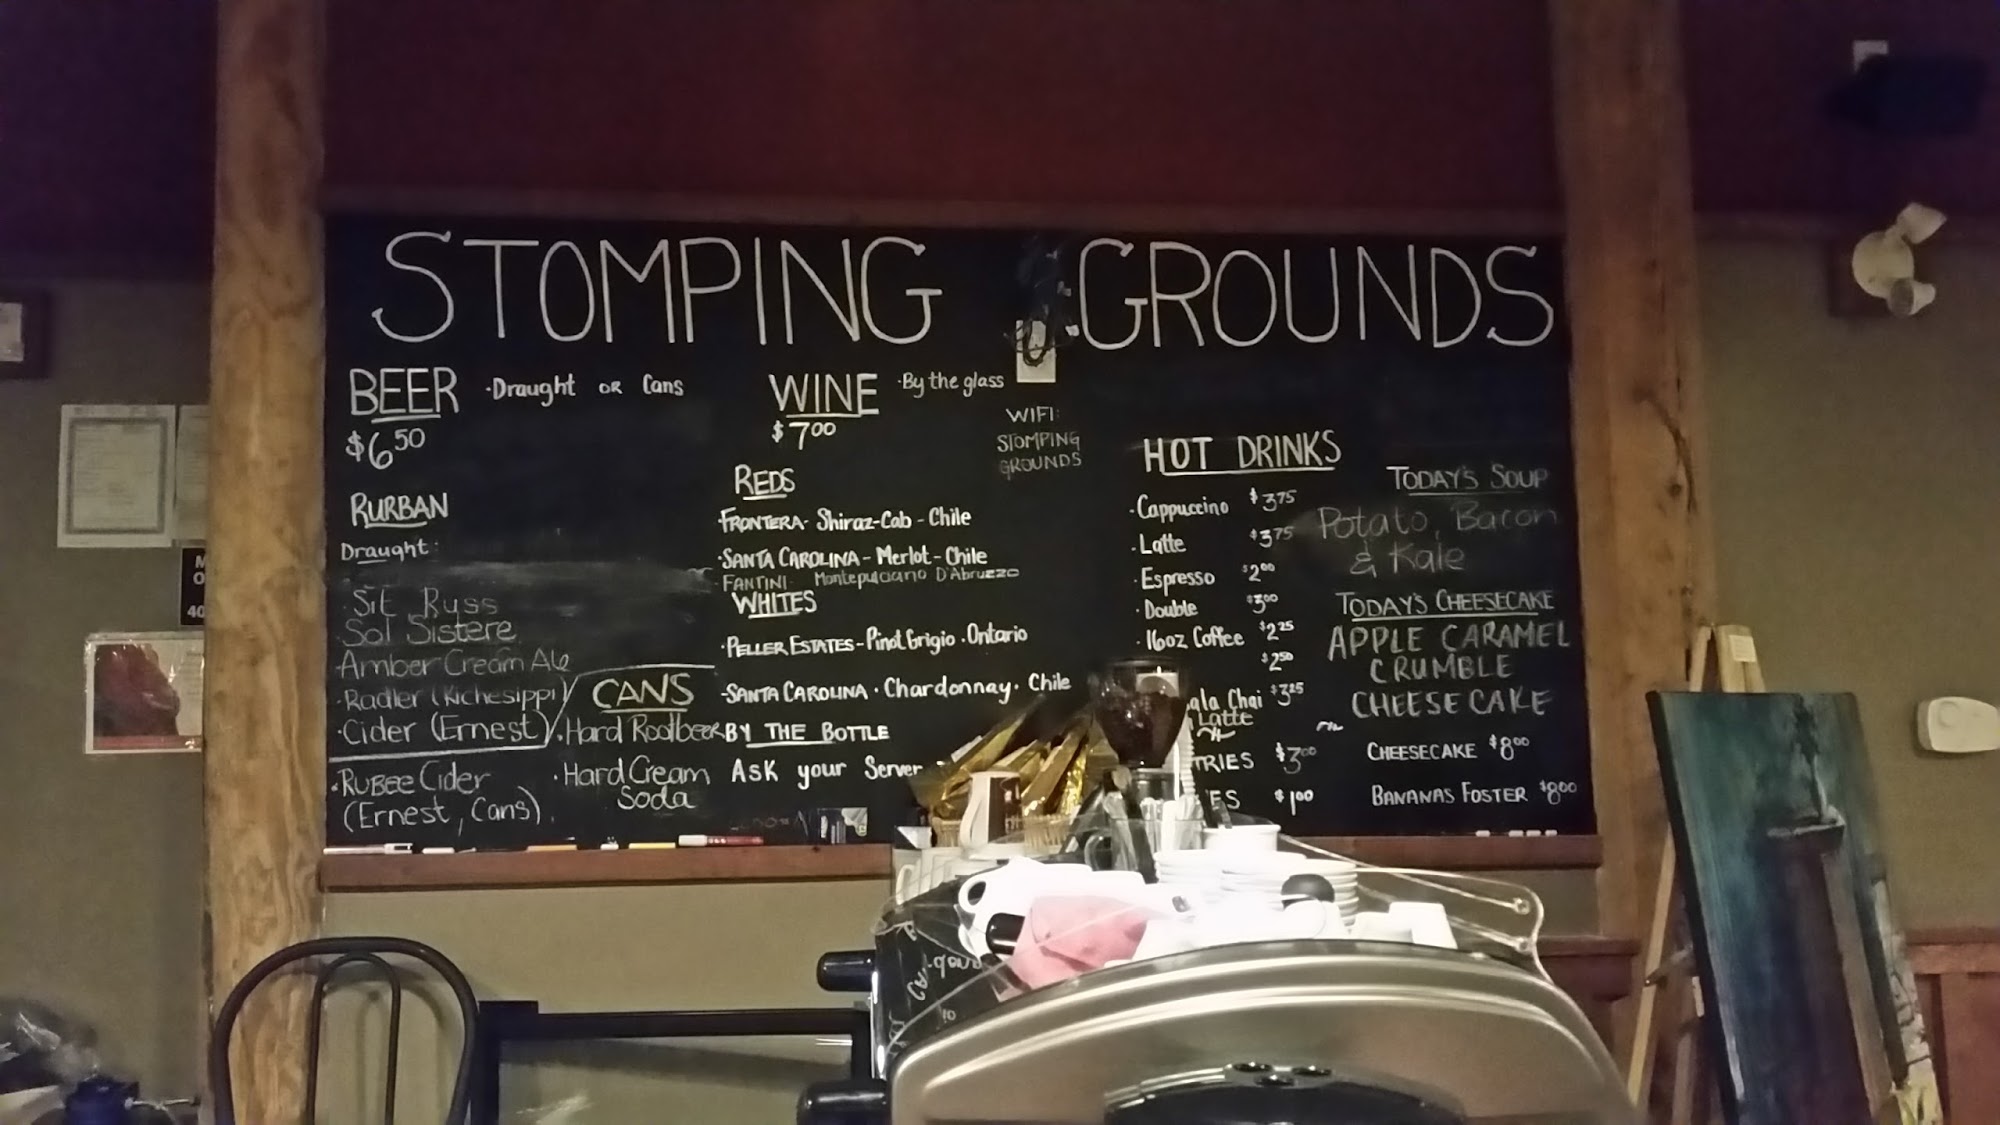 STOMPING GROUNDS
BEER · Draught OR Cans
$6.50
RURBAN
Draught:
· Sit Russ
Sol Sistere
· Amber Cream Ale
· Radler (Kichesippi)
· Cider (Ernest)
· RUBEE Cider
(Ernest, Cans)
CANS
· Hard Rootbeer
· Hard Cream
Soda
WINE · By the glass
$7.00
REDS
· FRONTERA - Shiraz-Cab - Chile
· SANTA CAROLINA - Merlot - Chile
· FANTINI Montepulciano D'Abruzzo
WHITES
· PELLER ESTATES - Pinot Grigio · Ontario
- SANTA CAROLINA · Chardonnay · Chile
BY THE BOTTLE
ASK your Server
WIFI:
STOMPING
GROUNDS
HOT DRINKS
· Cappuccino $3.75
· Latte $3.75
· Espresso $2.00
· Double $3.00
· 16oz Coffee $2.25
$2.50
ala Chai $3.25
Latte
TRIES $3.00
ES $1.00
TODAY'S SOUP
Potato, Bacon
& Kale
TODAY'S CHEESECAKE
APPLE CARAMEL
CRUMBLE
CHEESECAKE
CHEESECAKE $8.00
BANANAS FOSTER $8.00